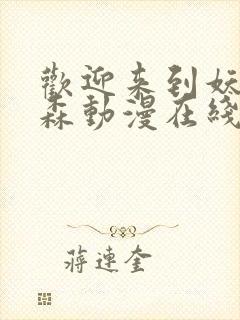 歡迎来到妖
森動漫在綫
蔣連奎